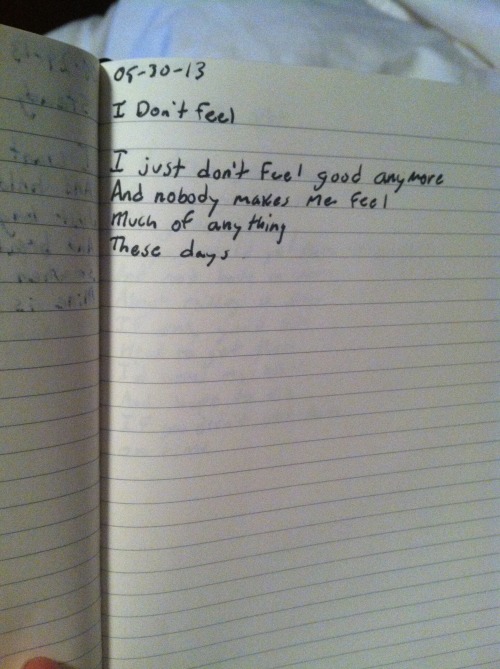 05-30-13
I Don't Feel
I just don't Feel good anymore
And nobody makes me feel
Much of anything
These days